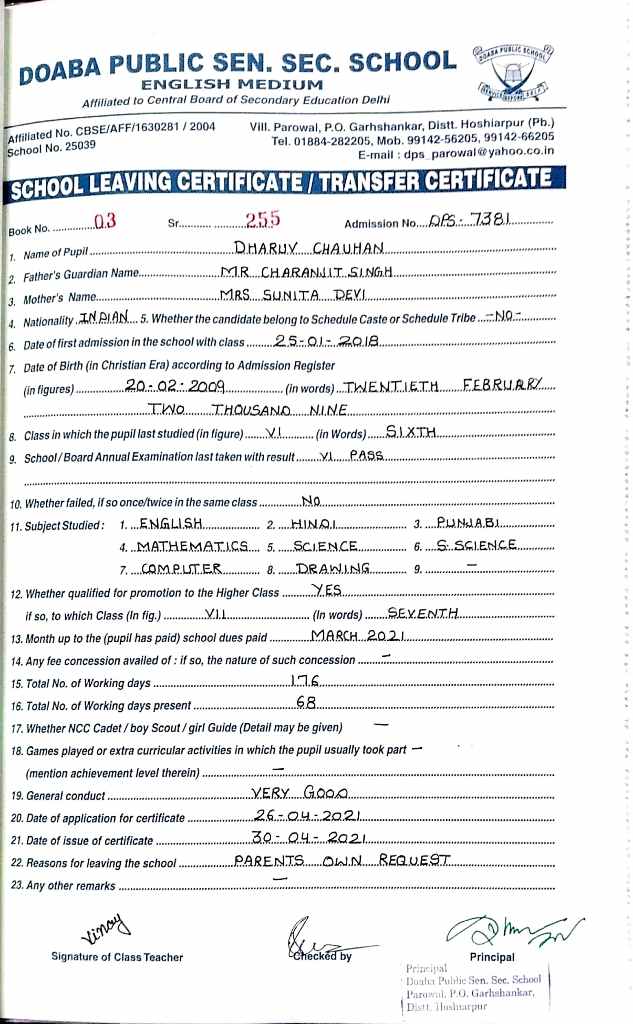 DOABA PUBLIC SEN. SEC. SCHOOL
ENGLISH MEDIUM
Affiliated to Central Board of Secondary Education Delhi
DOABA PUBLIC SCHOOL
Affiliated No. CBSE/AFF/1630281 / 2004
School No. 25039
Vill. Parowal, P.O. Garhshankar, Distt. Hoshiarpur (Pb.)
Tel. 01884-282205, Mob. 99142-56205, 99142-66205
E-mail : dps_parowal@yahoo.co.in
SCHOOL LEAVING CERTIFICATE / TRANSFER CERTIFICATE
Book No. 03 Sr. 255 Admission No. DPS-7381
1. Name of Pupil DHARUV CHAUHAN
2. Father's Guardian Name MR CHARANJIT SINGH
3. Mother's Name MRS SUNITA DEVI
4. Nationality INDIAN 5. Whether the candidate belong to Schedule Caste or Schedule Tribe -NO-
6. Date of first admission in the school with class 25-01-2018
7. Date of Birth (in Christian Era) according to Admission Register
(in figures) 20-02-2009 (in words) TWENTIETH FEBRUARY
TWO THOUSAND NINE
8. Class in which the pupil last studied (in figure) VI (in Words) SIXTH
9. School / Board Annual Examination last taken with result VI PASS
10. Whether failed, if so once/twice in the same class NO
11. Subject Studied : 1. ENGLISH 2. HINDI 3. PUNJABI
4. MATHEMATICS 5. SCIENCE 6. S.SCIENCE
7. COMPUTER 8. DRAWING 9. –
12. Whether qualified for promotion to the Higher Class YES
if so, to which Class (In fig.) VII (In words) SEVENTH
13. Month up to the (pupil has paid) school dues paid MARCH 2021
14. Any fee concession availed of : if so, the nature of such concession –
15. Total No. of Working days 176
16. Total No. of Working days present 68
17. Whether NCC Cadet / boy Scout / girl Guide (Detail may be given) –
18. Games played or extra curricular activities in which the pupil usually took part –
(mention achievement level therein) –
19. General conduct VERY GOOD
20. Date of application for certificate 26-04-2021
21. Date of issue of certificate 30-04-2021
22. Reasons for leaving the school PARENTS OWN REQUEST
23. Any other remarks –
Vinay
Signature of Class Teacher Checked by Principal
Principal
Doaba Public Sen. Sec. School
Parowal, P.O. Garhshankar,
Distt. Hoshiarpur